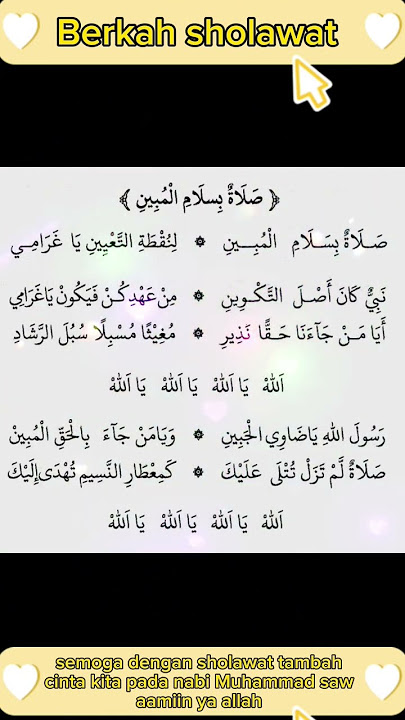 Berkah sholawat
﴿ صَلَاةٌ بِسلَامِ الْمُبِينِ ﴾
صَـلَاةٌ بِسَـلَامِ الْمُبِـــينِ ۞ لِنُقْطَةِ التَّعْيِينِ يَا غَرَامِـي
نَبِيٌّ كَانَ أَصْـلَ التَّكْـوِينِ ۞ مِنْ عَهْدِ كُـنْ فَيَكُونْ يَاغَرَامِي
أَيَا مَـنْ جَآءَنَا حَـقًّا نَذِيرِ ۞ مُغِيْثًا مُسْبِلًا سُبُلَ الرَّشَادِ
اَللهْ يَا اَللهْ يَا اَللهْ يَا اَللهْ
رَسُولَ اللهِ يَاضَاوِي الْجَبِينِ ۞ وَيَامَنْ جَآءَ بِالْحَقِّ الْمُبِينْ
صَلَاةٌ لَّمْ تَزَلْ تُتْلَى عَلَيْكَ ۞ كَمِعْطَارِ النَّسِيمِ تُهْدَى إِلَيْكَ
اَللهْ يَا اَللهْ يَا اَللهْ يَا اَللهْ
semoga dengan sholawat tambah
cinta kita pada nabi Muhammad saw
aamiin ya allah